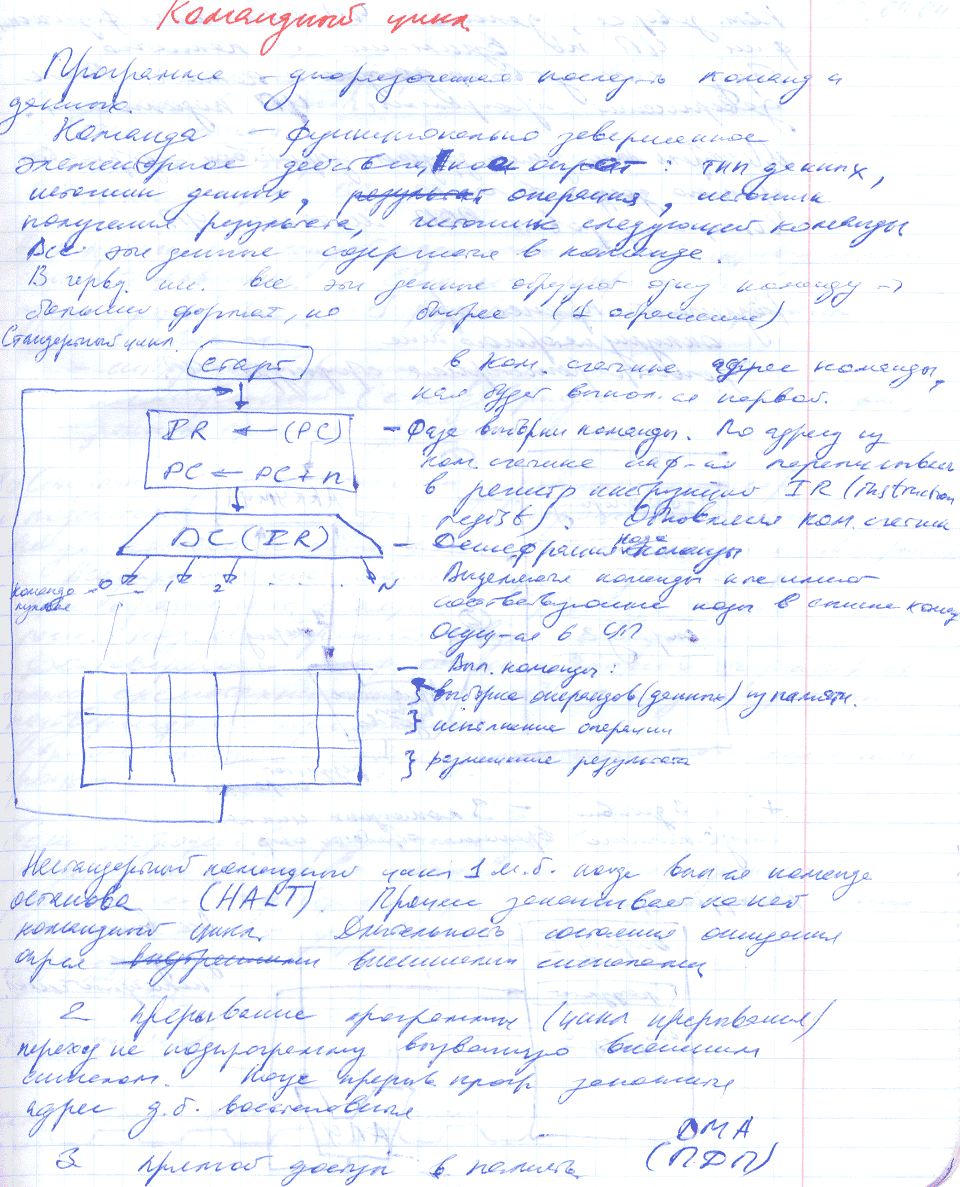 Командный цикл
Программа - упорядоченная послед-ть команд и
данных.
Команда - функционально завершенное
элементарное действие, кое опр-ет : тип данных,
источник данных, результат операция, источник
получения результата, источник следующей команды
Все эти данные содержатся в команде.
В все эти данные образуют одну команду →
большой формат, но быстрее (1 обращение)
Стандартный цикл.
старт
в ком. счетчике адрес команды,
кая будет выполн-ся первой.
IR ← (PC)
PC ← PC + n
- Фаза выборки команды. По адресу из
ком. счетчика инф-ия переписывается
в регистр инструкций IR (instruction
regist). Обновляется ком. счетчик
DC (IR)
- Дешифрация кода команды
Команда
нулевая
0 1 2 . . . . N
Выделяются команды кие имеют
соответствующие коды в списке команд
Осущ-ся в ЦП
- Вып. команды :
} выборка операндов (данных) из памяти.
} исполнение операции
} размещение результата
Нестандартный командный цикл 1 м.б. когда вып-ся команда
останова (HALT). Процес заканчивает на ней
командный цикл. Длительность состояния ожидания
опр-ся внутренними внешними сигналами
2 Прерывание программы (цикл прерывания)
переход на подпрограмму вызванную внешним
сигналом. Когда прерыв. прогр закончится
адрес д.б. восстановиться
3 Прямой доступ в память DMA
(ПДП)